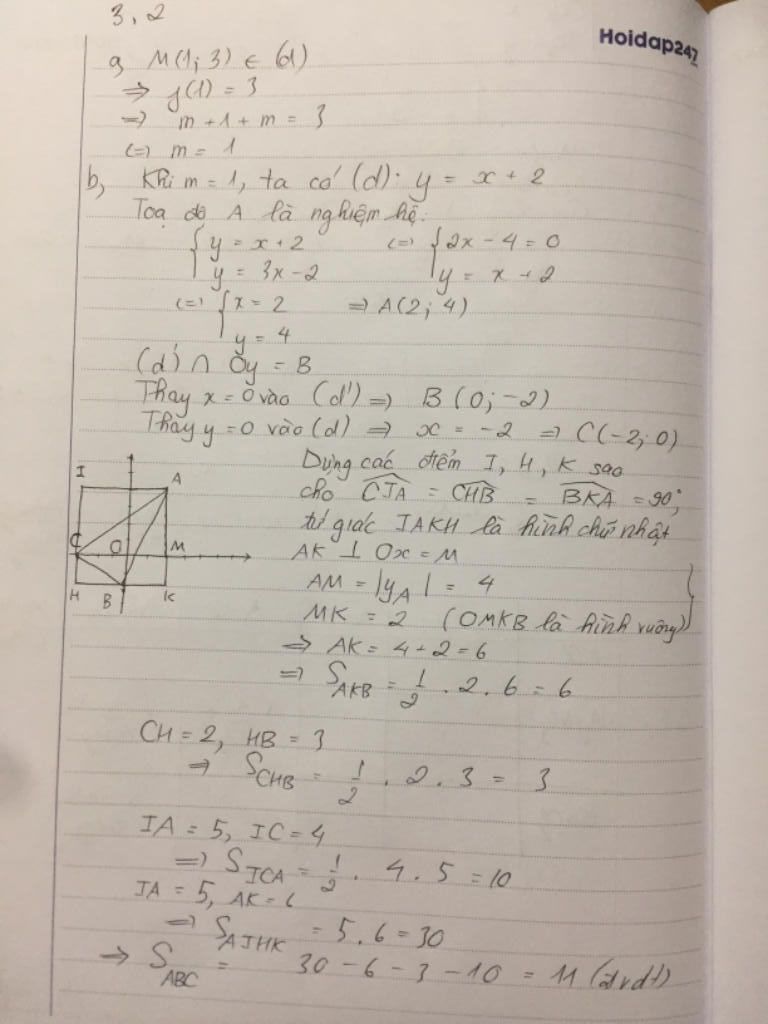 3, 2
Hoidap247
a, M(1; 3) ∈ (d)
⇒ y(1) = 3
⇒ m + 1 + m = 3
(=) m = 1
b, Khi m = 1, ta có (d): y = x + 2
Toạ độ A là nghiệm hệ:
{ y = x + 2 (=) { 2x - 4 = 0
{ y = 3x - 2 { y = x + 2
(=) { x = 2 ⇒ A(2; 4)
{ y = 4
(d') ∩ Oy = B
Thay x = 0 vào (d') ⇒ B (0; -2)
Thay y = 0 vào (d) ⇒ x = -2 ⇒ C(-2; 0)
Dựng các điểm I, H, K sao
cho CIA = CHB = BKA = 90°,
tứ giác IAKH là hình chữ nhật
I A
C O M
H B K
AK ⊥ Ox = M
AM = |yA| = 4
MK = 2 (OMKB là hình vuông)
⇒ AK = 4 + 2 = 6
⇒ S AKB = 1/2 . 2 . 6 = 6
CH = 2, HB = 3
⇒ S CHB = 1/2 . 2 . 3 = 3
IA = 5, IC = 4
⇒ S ICA = 1/2 . 4 . 5 = 10
IA = 5, AK = 6
⇒ S AIHK = 5 . 6 = 30
⇒ S ABC = 30 - 6 - 3 - 10 = 11 (đvdt)